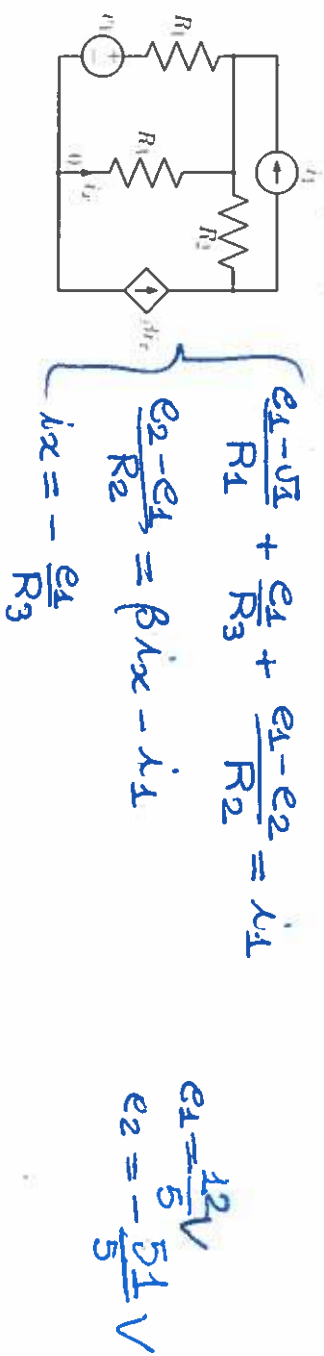 i1
R1
R2
R3
v1
ix
0
βix
(e1 - v1)/R1 + e1/R3 + (e1 - e2)/R2 = i1
(e2 - e1)/R2 = βix - i1
ix = - e1/R3
e1 = 12/5 V
e2 = - 51/5 V